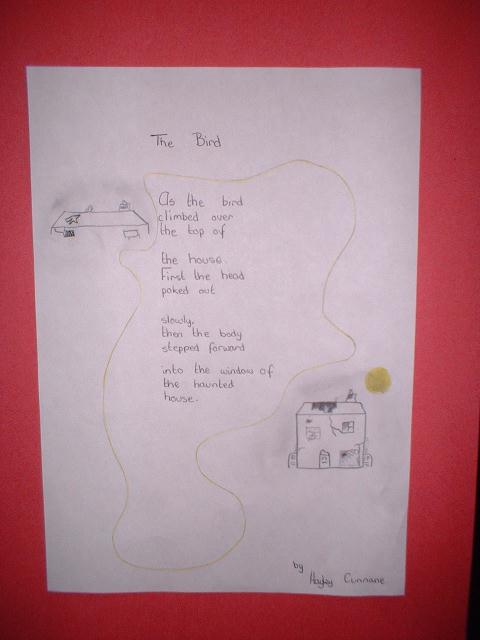 The Bird
As the bird
climbed over
the top of
the house.
First the head
poked out
slowly,
then the body
stepped forward
into the window of
the haunted
house.
by
Hayley Cunnane